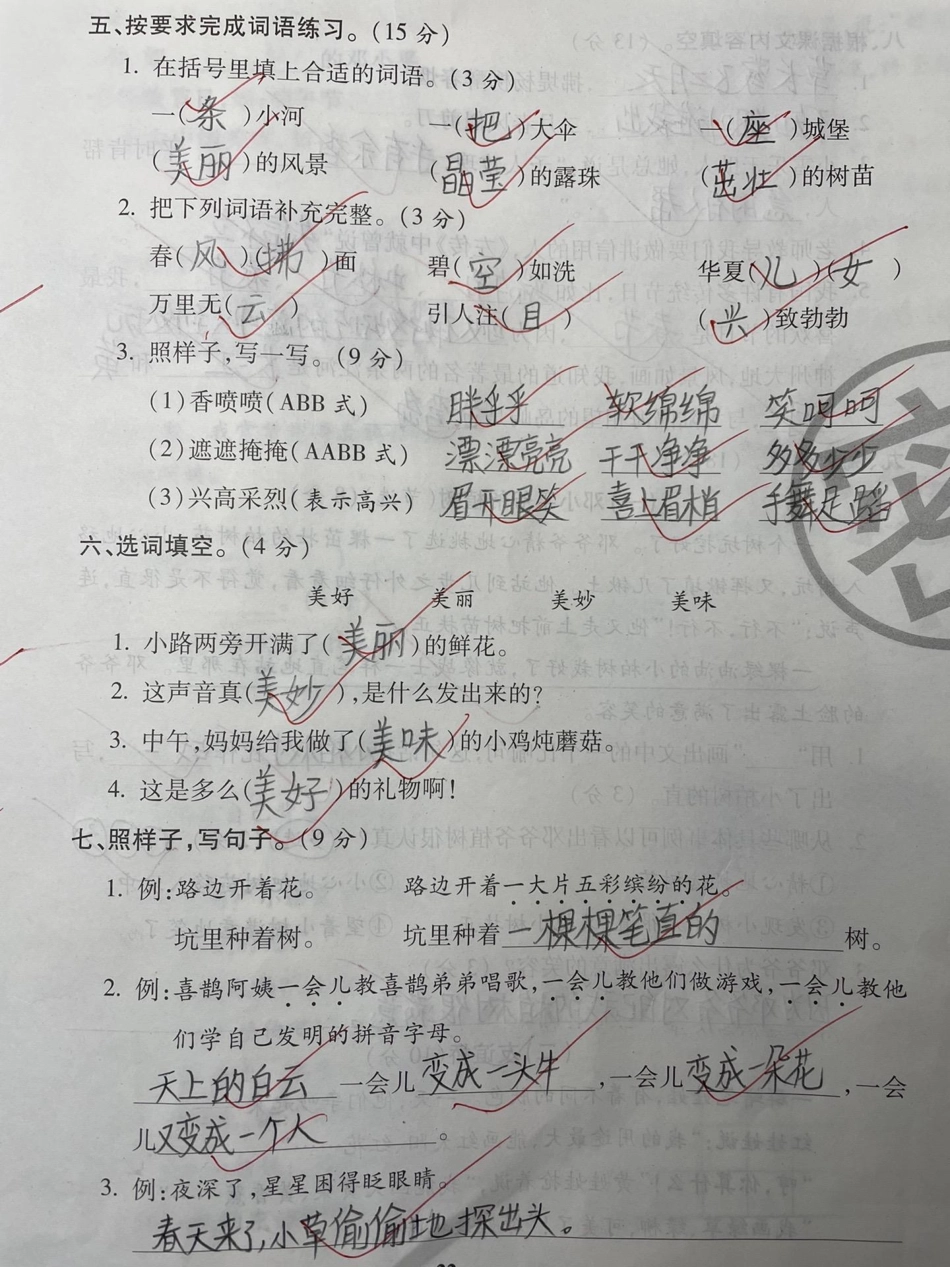 五、按要求完成词语练习。(15分)
1. 在括号里填上合适的词语。(3分)
一(条)小河 一(把)大伞 一(座)城堡
(美丽)的风景 (晶莹)的露珠 (茁壮)的树苗
2. 把下列词语补充完整。(3分)
春(风)(拂)面 碧(空)如洗 华夏(儿)(女)
万里无(云) 引人注(目) (兴)致勃勃
3. 照样子,写一写。(9分)
(1)香喷喷(ABB式) 胖乎乎 软绵绵 笑呵呵
(2)遮遮掩掩(AABB式) 漂漂亮亮 干干净净 多多少少
(3)兴高采烈(表示高兴) 眉开眼笑 喜上眉梢 手舞足蹈
六、选词填空。(4分)
美好 美丽 美妙 美味
1. 小路两旁开满了(美丽)的鲜花。
2. 这声音真(美妙),是什么发出来的?
3. 中午,妈妈给我做了(美味)的小鸡炖蘑菇。
4. 这是多么(美好)的礼物啊!
七、照样子,写句子。(9分)
1. 例:路边开着花。 路边开着一大片五彩缤纷的花。
坑里种着树。 坑里种着一棵棵笔直的树。
2. 例:喜鹊阿姨一会儿教喜鹊弟弟唱歌,一会儿教他们做游戏,一会儿教他
们学自己发明的拼音字母。
天上的白云一会儿变成一头牛,一会儿变成一朵花,一会
儿又变成一个人。
3. 例:夜深了,星星困得眨眼睛。
春天来了,小草偷偷地探出头。